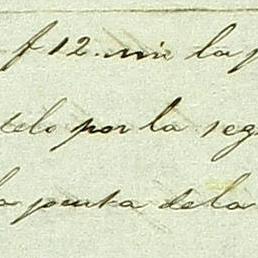 f 12. mi la p
telo por la seg
la punta de la